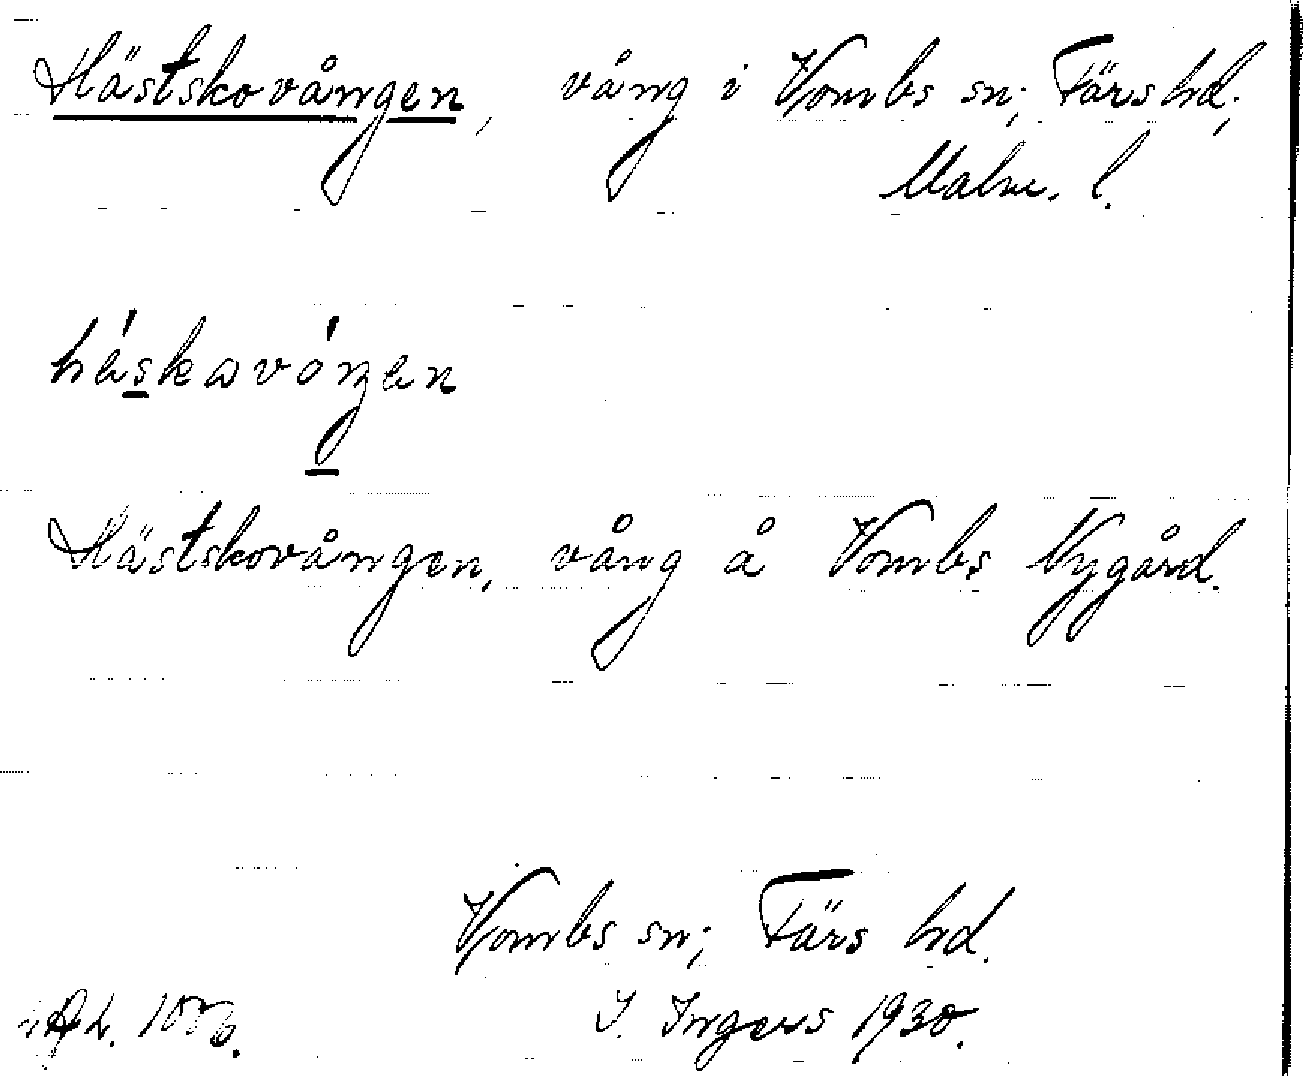 Hästskovången, vång i Vombs sn; Färs hd;
Malm. l.
Hästskovången, vång å Vombs Nygård.
Vombs sn; Färs hd.
I. Ingers 1930.